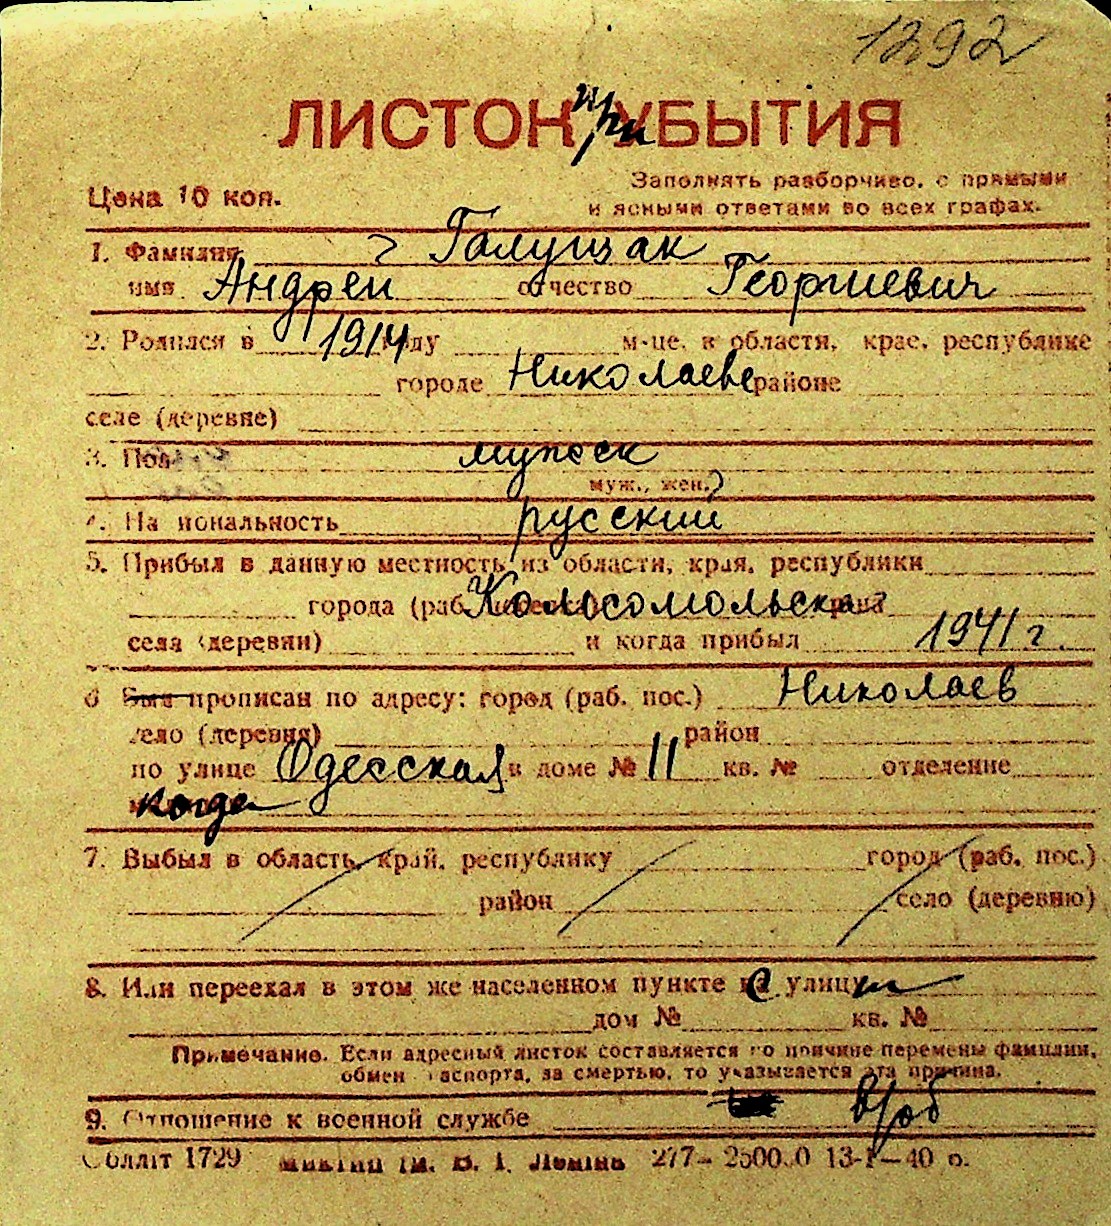 1292
ЛИСТОК при УБЫТИЯ
Цена 10 коп.
Заполнять разборчиво, с прямыми
и ясными ответами во всех графах.
1. Фамилия Галущак
имя Андрей отчество Георгиевич
2. Родился в 1914 году м-це, в области, крае, республике
городе Николаеве районе
селе (деревне)
3. Пол мужеск
муж., жен.
4. Национальность русский
5. Прибыл в данную местность из области, края, республики
города (раб. Комсомольска
села (деревни) и когда прибыл 1941 г.
6 Был прописан по адресу: город (раб. пос.) Николаев
село (деревня) район
по улице Одесская в доме № 11 кв. № отделение
когда
7. Выбыл в область, край, республику город (раб. пос.)
район село (деревню)
8. Или переехал в этом же населенном пункте на с улицу
дом № кв. №
Примечание. Если адресный листок составляется по причине перемены фамилии,
обмен паспорта, за смертью, то указывается эта причина.
9. Отношение к военной службе в/об
Обллiт 1729 iм. В. І. Леніна 277— 13-I—40 р.